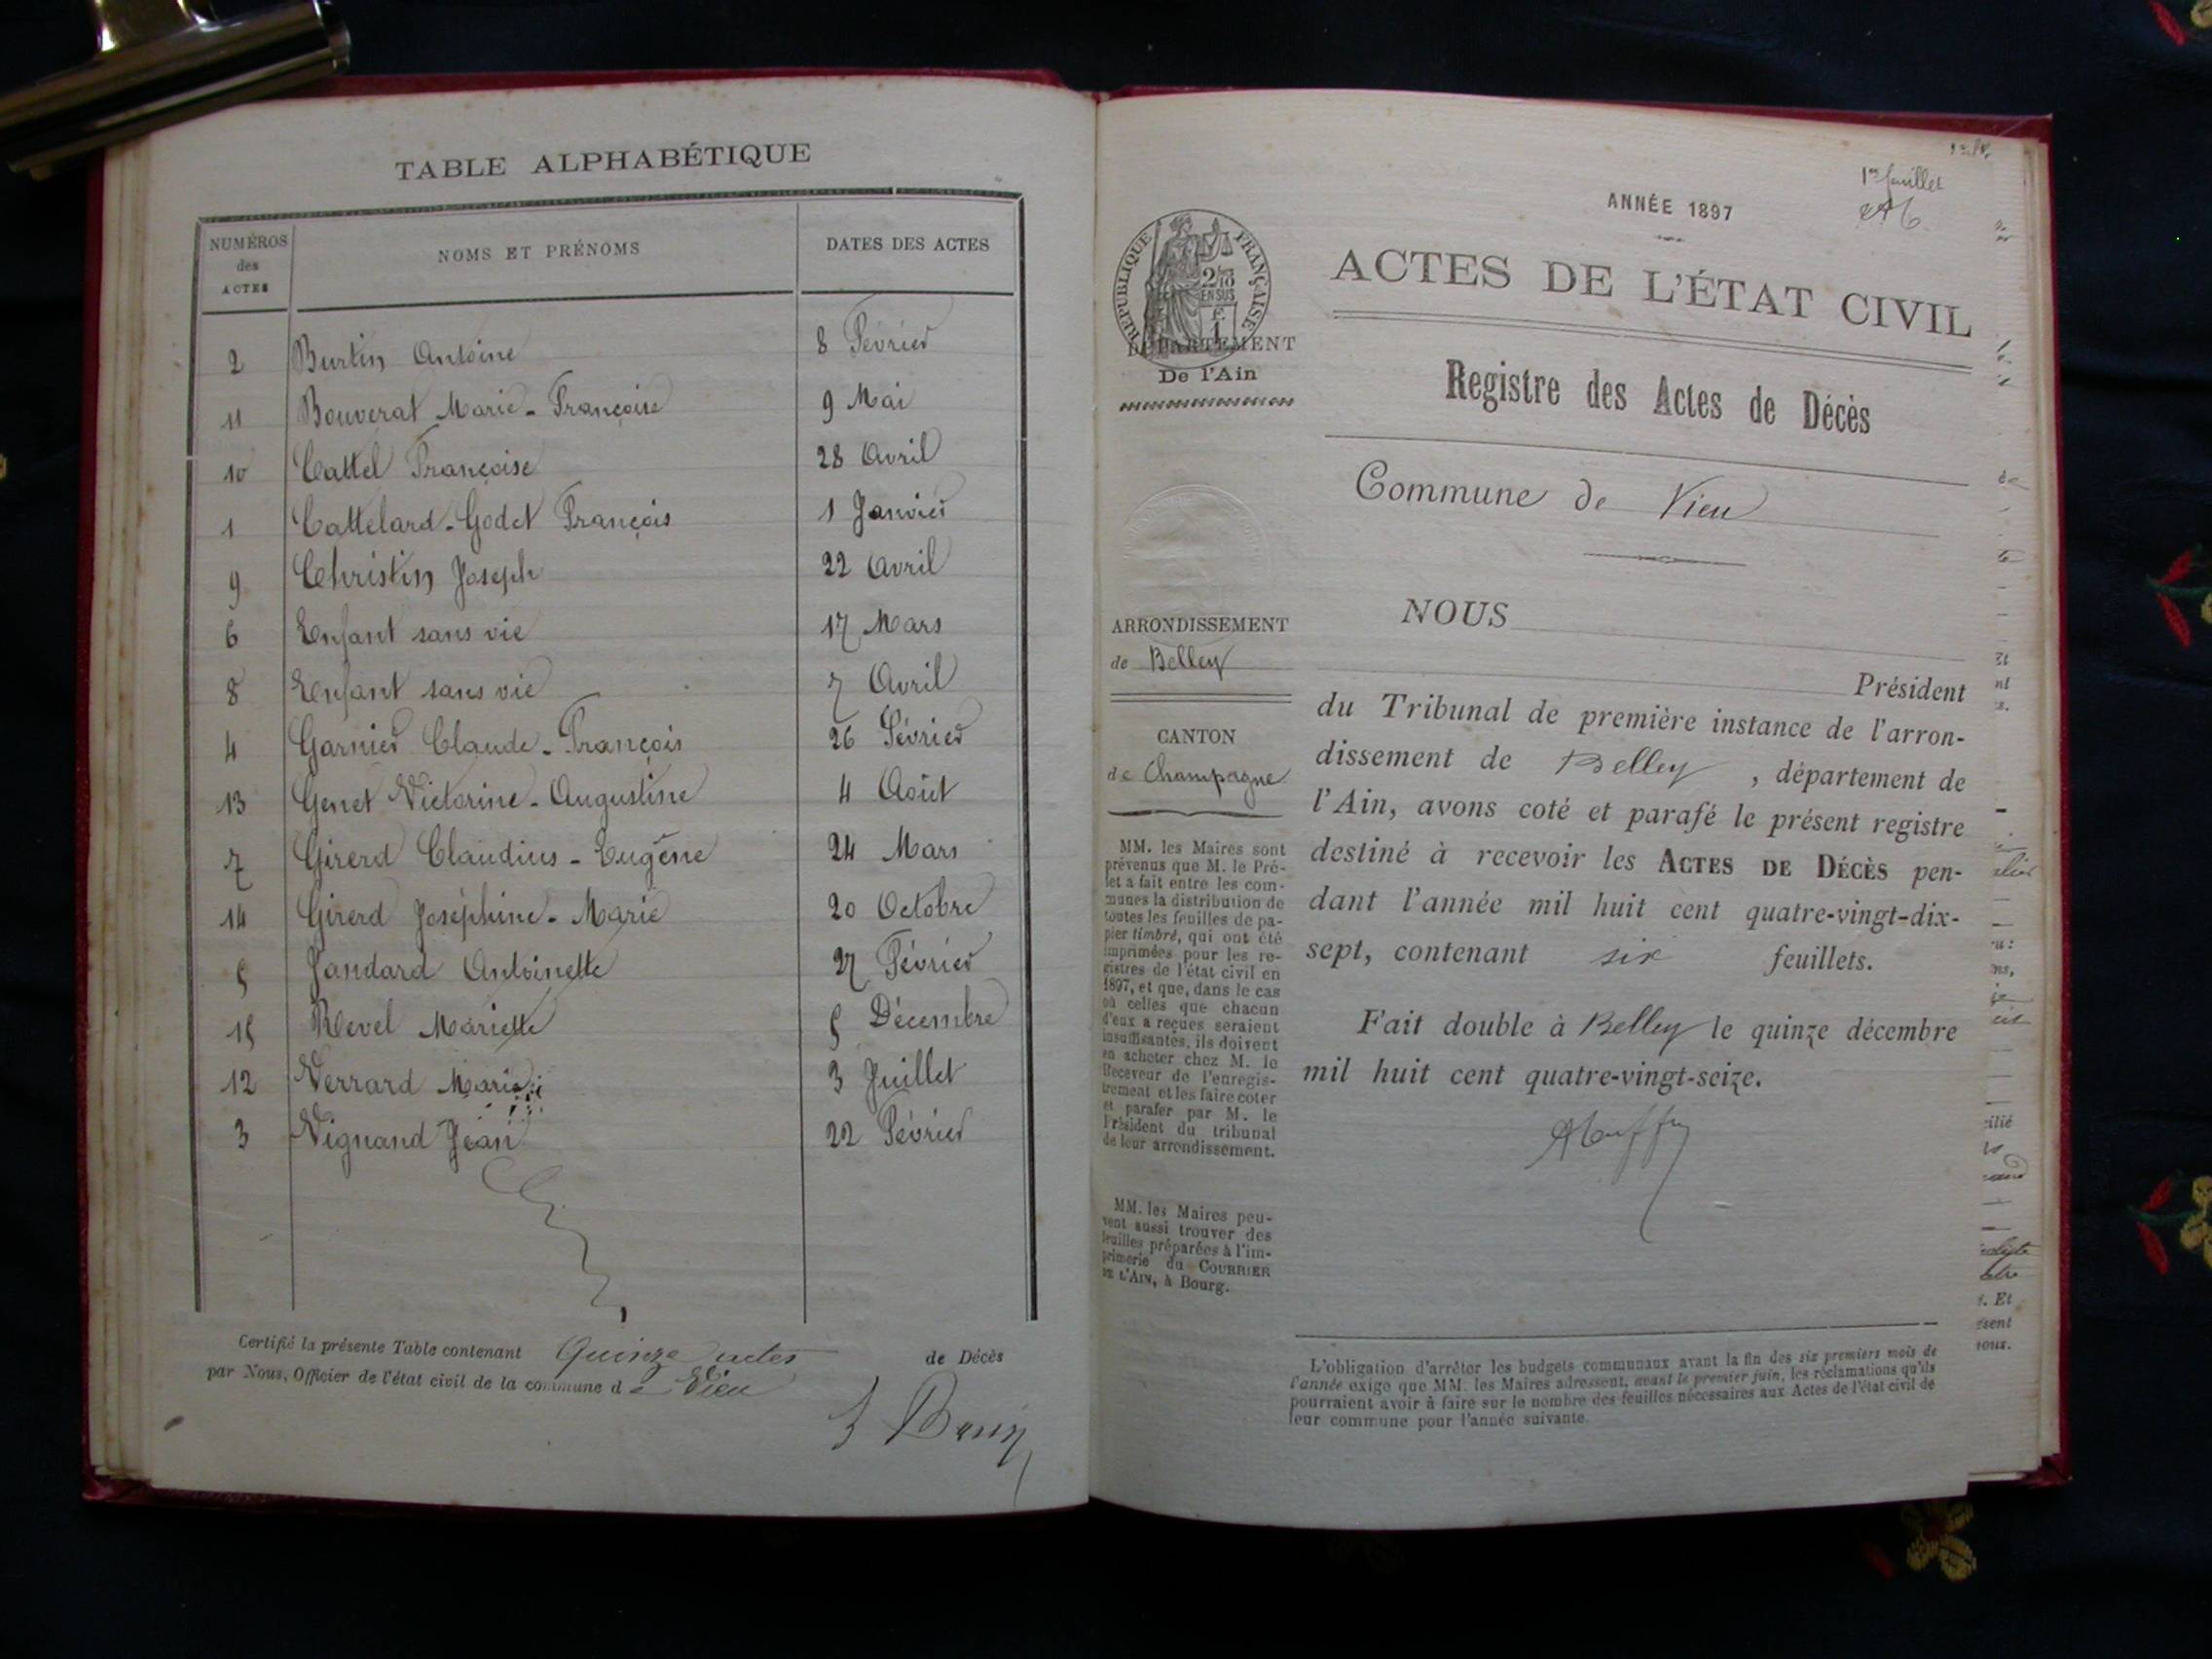 TABLE ALPHABÉTIQUE
NUMÉROS des ACTES
NOMS ET PRÉNOMS
DATES DES ACTES
2 Burtin Antoine 8 Février
11 Bouverat Marie-Françoise 9 Mai
10 Cattel Françoise 28 Avril
1 Cattelard-Godet François 1 Janvier
9 Christin Joseph 22 Avril
6 Enfant sans vie 17 Mars
8 Enfant sans vie 7 Avril
4 Garnier Claude-François 26 Février
13 Genet Victorine-Augustine 4 Août
7 Girerd Claudius-Eugène 24 Mars
14 Girerd Joséphine-Marie 20 Octobre
5 Jandard Antoinette 27 Février
15 Revel Mariette 5 Décembre
12 Verrard Marie 3 Juillet
3 Vignand Jean 22 Février
Certifié la présente Table contenant Quinze actes de Décès
par Nous, Officier de l'état civil de la commune de Vieu
1er feuillet
ANNÉE 1897
RÉPUBLIQUE FRANÇAISE
2/10 EN SUS
F. 1
ACTES DE L'ÉTAT CIVIL
DÉPARTEMENT
De l'Ain
Registre des Actes de Décès
Commune de Vieu
ARRONDISSEMENT
de Belley
CANTON
de Champagne
MM. les Maires sont
prévenus que M. le Pré-
fet a fait entre les com-
munes la distribution de
toutes les feuilles de pa-
pier timbré, qui ont été
imprimées pour les re-
gistres de l'état civil en
1897, et que, dans le cas
où celles que chacun
d'eux a reçues seraient
insuffisantes, ils doivent
en acheter chez M. le
Receveur de l'enregis-
trement et les faire coter
et parafer par M. le
Président du tribunal
de leur arrondissement.
MM. les Maires peu-
vent aussi trouver des
feuilles préparées à l'im-
primerie du COURRIER
DE L'AIN, à Bourg.
NOUS
Président
du Tribunal de première instance de l'arron-
dissement de Belley, département de
l'Ain, avons coté et parafé le présent registre
destiné à recevoir les ACTES DE DÉCÈS pen-
dant l'année mil huit cent quatre-vingt-dix-
sept, contenant six feuillets.
Fait double à Belley le quinze décembre
mil huit cent quatre-vingt-seize.
L'obligation d'arrêter les budgets communaux avant la fin des six premiers mois de
l'année exige que MM. les Maires adressent, avant le premier juin, les réclamations qu'ils
pourraient avoir à faire sur le nombre des feuilles nécessaires aux Actes de l'état civil de
leur commune pour l'année suivante.